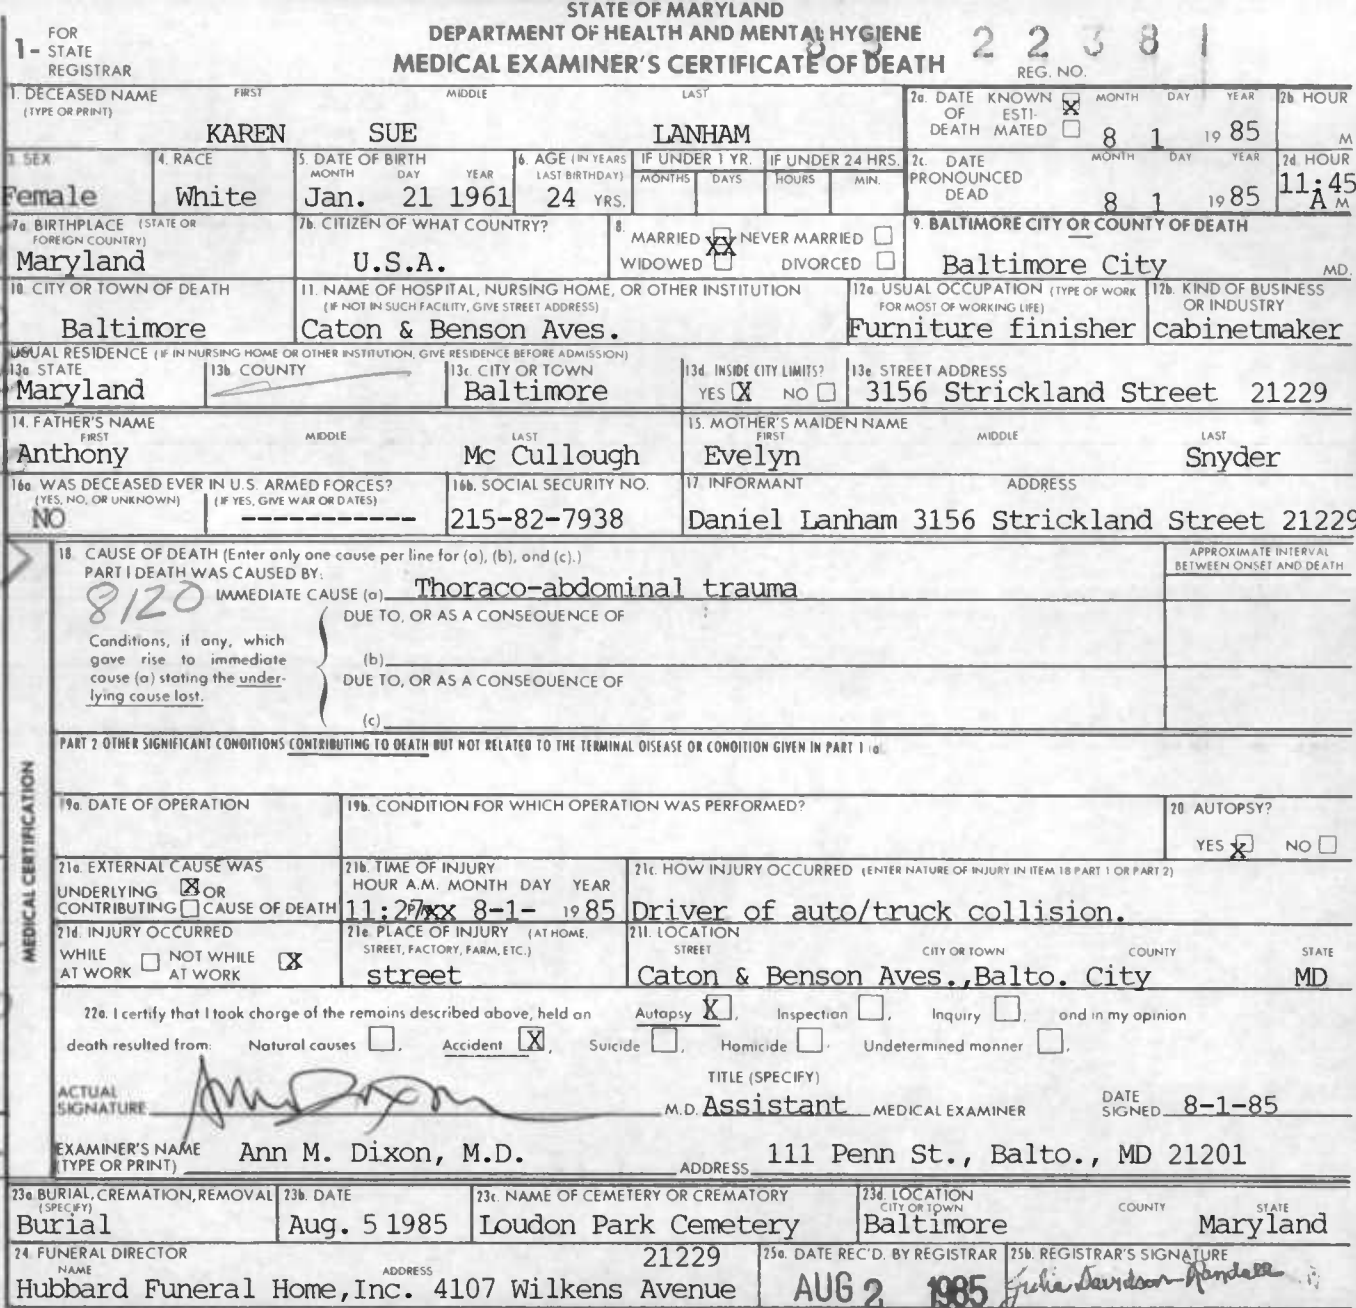 STATE OF MARYLAND
DEPARTMENT OF HEALTH AND MENTAL HYGIENE
MEDICAL EXAMINER'S CERTIFICATE OF DEATH
1- FOR STATE REGISTRAR
85 22381
REG. NO.
1. DECEASED NAME (TYPE OR PRINT) FIRST MIDDLE LAST
KAREN SUE LANHAM
2a. DATE OF DEATH KNOWN X ESTIMATED MONTH DAY YEAR
8 1 1985
2b. HOUR M
3. SEX
Female
4. RACE
White
5. DATE OF BIRTH MONTH DAY YEAR
Jan. 21 1961
6. AGE (IN YEARS LAST BIRTHDAY)
24 YRS.
IF UNDER 1 YR. MONTHS DAYS
IF UNDER 24 HRS. HOURS MIN.
2c. DATE PRONOUNCED DEAD MONTH DAY YEAR
8 1 1985
2d. HOUR
11:45 A M
7a. BIRTHPLACE (STATE OR FOREIGN COUNTRY)
Maryland
7b. CITIZEN OF WHAT COUNTRY?
U.S.A.
8. MARRIED XX NEVER MARRIED
WIDOWED DIVORCED
9. BALTIMORE CITY OR COUNTY OF DEATH
Baltimore City MD.
10. CITY OR TOWN OF DEATH
Baltimore
11. NAME OF HOSPITAL, NURSING HOME, OR OTHER INSTITUTION
(IF NOT IN SUCH FACILITY, GIVE STREET ADDRESS)
Caton & Benson Aves.
12a. USUAL OCCUPATION (TYPE OF WORK FOR MOST OF WORKING LIFE)
Furniture finisher
12b. KIND OF BUSINESS OR INDUSTRY
cabinetmaker
USUAL RESIDENCE (IF IN NURSING HOME OR OTHER INSTITUTION, GIVE RESIDENCE BEFORE ADMISSION)
13a. STATE
Maryland
13b. COUNTY
13c. CITY OR TOWN
Baltimore
13d. INSIDE CITY LIMITS?
YES X NO
13e. STREET ADDRESS
3156 Strickland Street 21229
14. FATHER'S NAME FIRST MIDDLE LAST
Anthony Mc Cullough
15. MOTHER'S MAIDEN NAME FIRST MIDDLE LAST
Evelyn Snyder
16a. WAS DECEASED EVER IN U.S. ARMED FORCES?
(YES, NO, OR UNKNOWN) (IF YES, GIVE WAR OR DATES)
NO ------------
16b. SOCIAL SECURITY NO.
215-82-7938
17. INFORMANT ADDRESS
Daniel Lanham 3156 Strickland Street 21229
MEDICAL CERTIFICATION
18. CAUSE OF DEATH (Enter only one cause per line for (a), (b), and (c).)
PART I DEATH WAS CAUSED BY:
APPROXIMATE INTERVAL BETWEEN ONSET AND DEATH
8120 IMMEDIATE CAUSE (a) Thoraco-abdominal trauma
DUE TO, OR AS A CONSEQUENCE OF
Conditions, if any, which gave rise to immediate cause (a) stating the underlying cause last.
(b)
DUE TO, OR AS A CONSEQUENCE OF
(c)
PART 2 OTHER SIGNIFICANT CONDITIONS CONTRIBUTING TO DEATH BUT NOT RELATED TO THE TERMINAL DISEASE OR CONDITION GIVEN IN PART 1 (a)
19a. DATE OF OPERATION
19b. CONDITION FOR WHICH OPERATION WAS PERFORMED?
20. AUTOPSY?
YES X NO
21a. EXTERNAL CAUSE WAS
UNDERLYING X OR
CONTRIBUTING CAUSE OF DEATH
21b. TIME OF INJURY
HOUR A.M. MONTH DAY YEAR
11:27 P.M. xx 8-1- 1985
21c. HOW INJURY OCCURRED (ENTER NATURE OF INJURY IN ITEM 18 PART 1 OR PART 2)
Driver of auto/truck collision.
21d. INJURY OCCURRED
WHILE AT WORK NOT WHILE AT WORK X
21e. PLACE OF INJURY (AT HOME, STREET, FACTORY, FARM, ETC.)
street
21f. LOCATION STREET CITY OR TOWN COUNTY STATE
Caton & Benson Aves.,Balto. City MD
22a. I certify that I took charge of the remains described above, held an Autopsy X, Inspection , Inquiry , and in my opinion
death resulted from: Natural causes , Accident X, Suicide , Homicide , Undetermined manner .
ACTUAL SIGNATURE Ann Dixon M.D.
TITLE (SPECIFY)
Assistant MEDICAL EXAMINER
DATE SIGNED 8-1-85
EXAMINER'S NAME (TYPE OR PRINT) Ann M. Dixon, M.D.
ADDRESS 111 Penn St., Balto., MD 21201
23a. BURIAL, CREMATION, REMOVAL (SPECIFY)
Burial
23b. DATE
Aug. 5 1985
23c. NAME OF CEMETERY OR CREMATORY
Loudon Park Cemetery
23d. LOCATION CITY OR TOWN COUNTY STATE
Baltimore Maryland
24. FUNERAL DIRECTOR NAME ADDRESS
21229
Hubbard Funeral Home,Inc. 4107 Wilkens Avenue
25a. DATE REC'D. BY REGISTRAR
AUG 2 1985
25b. REGISTRAR'S SIGNATURE
Julia Davidson-Randall